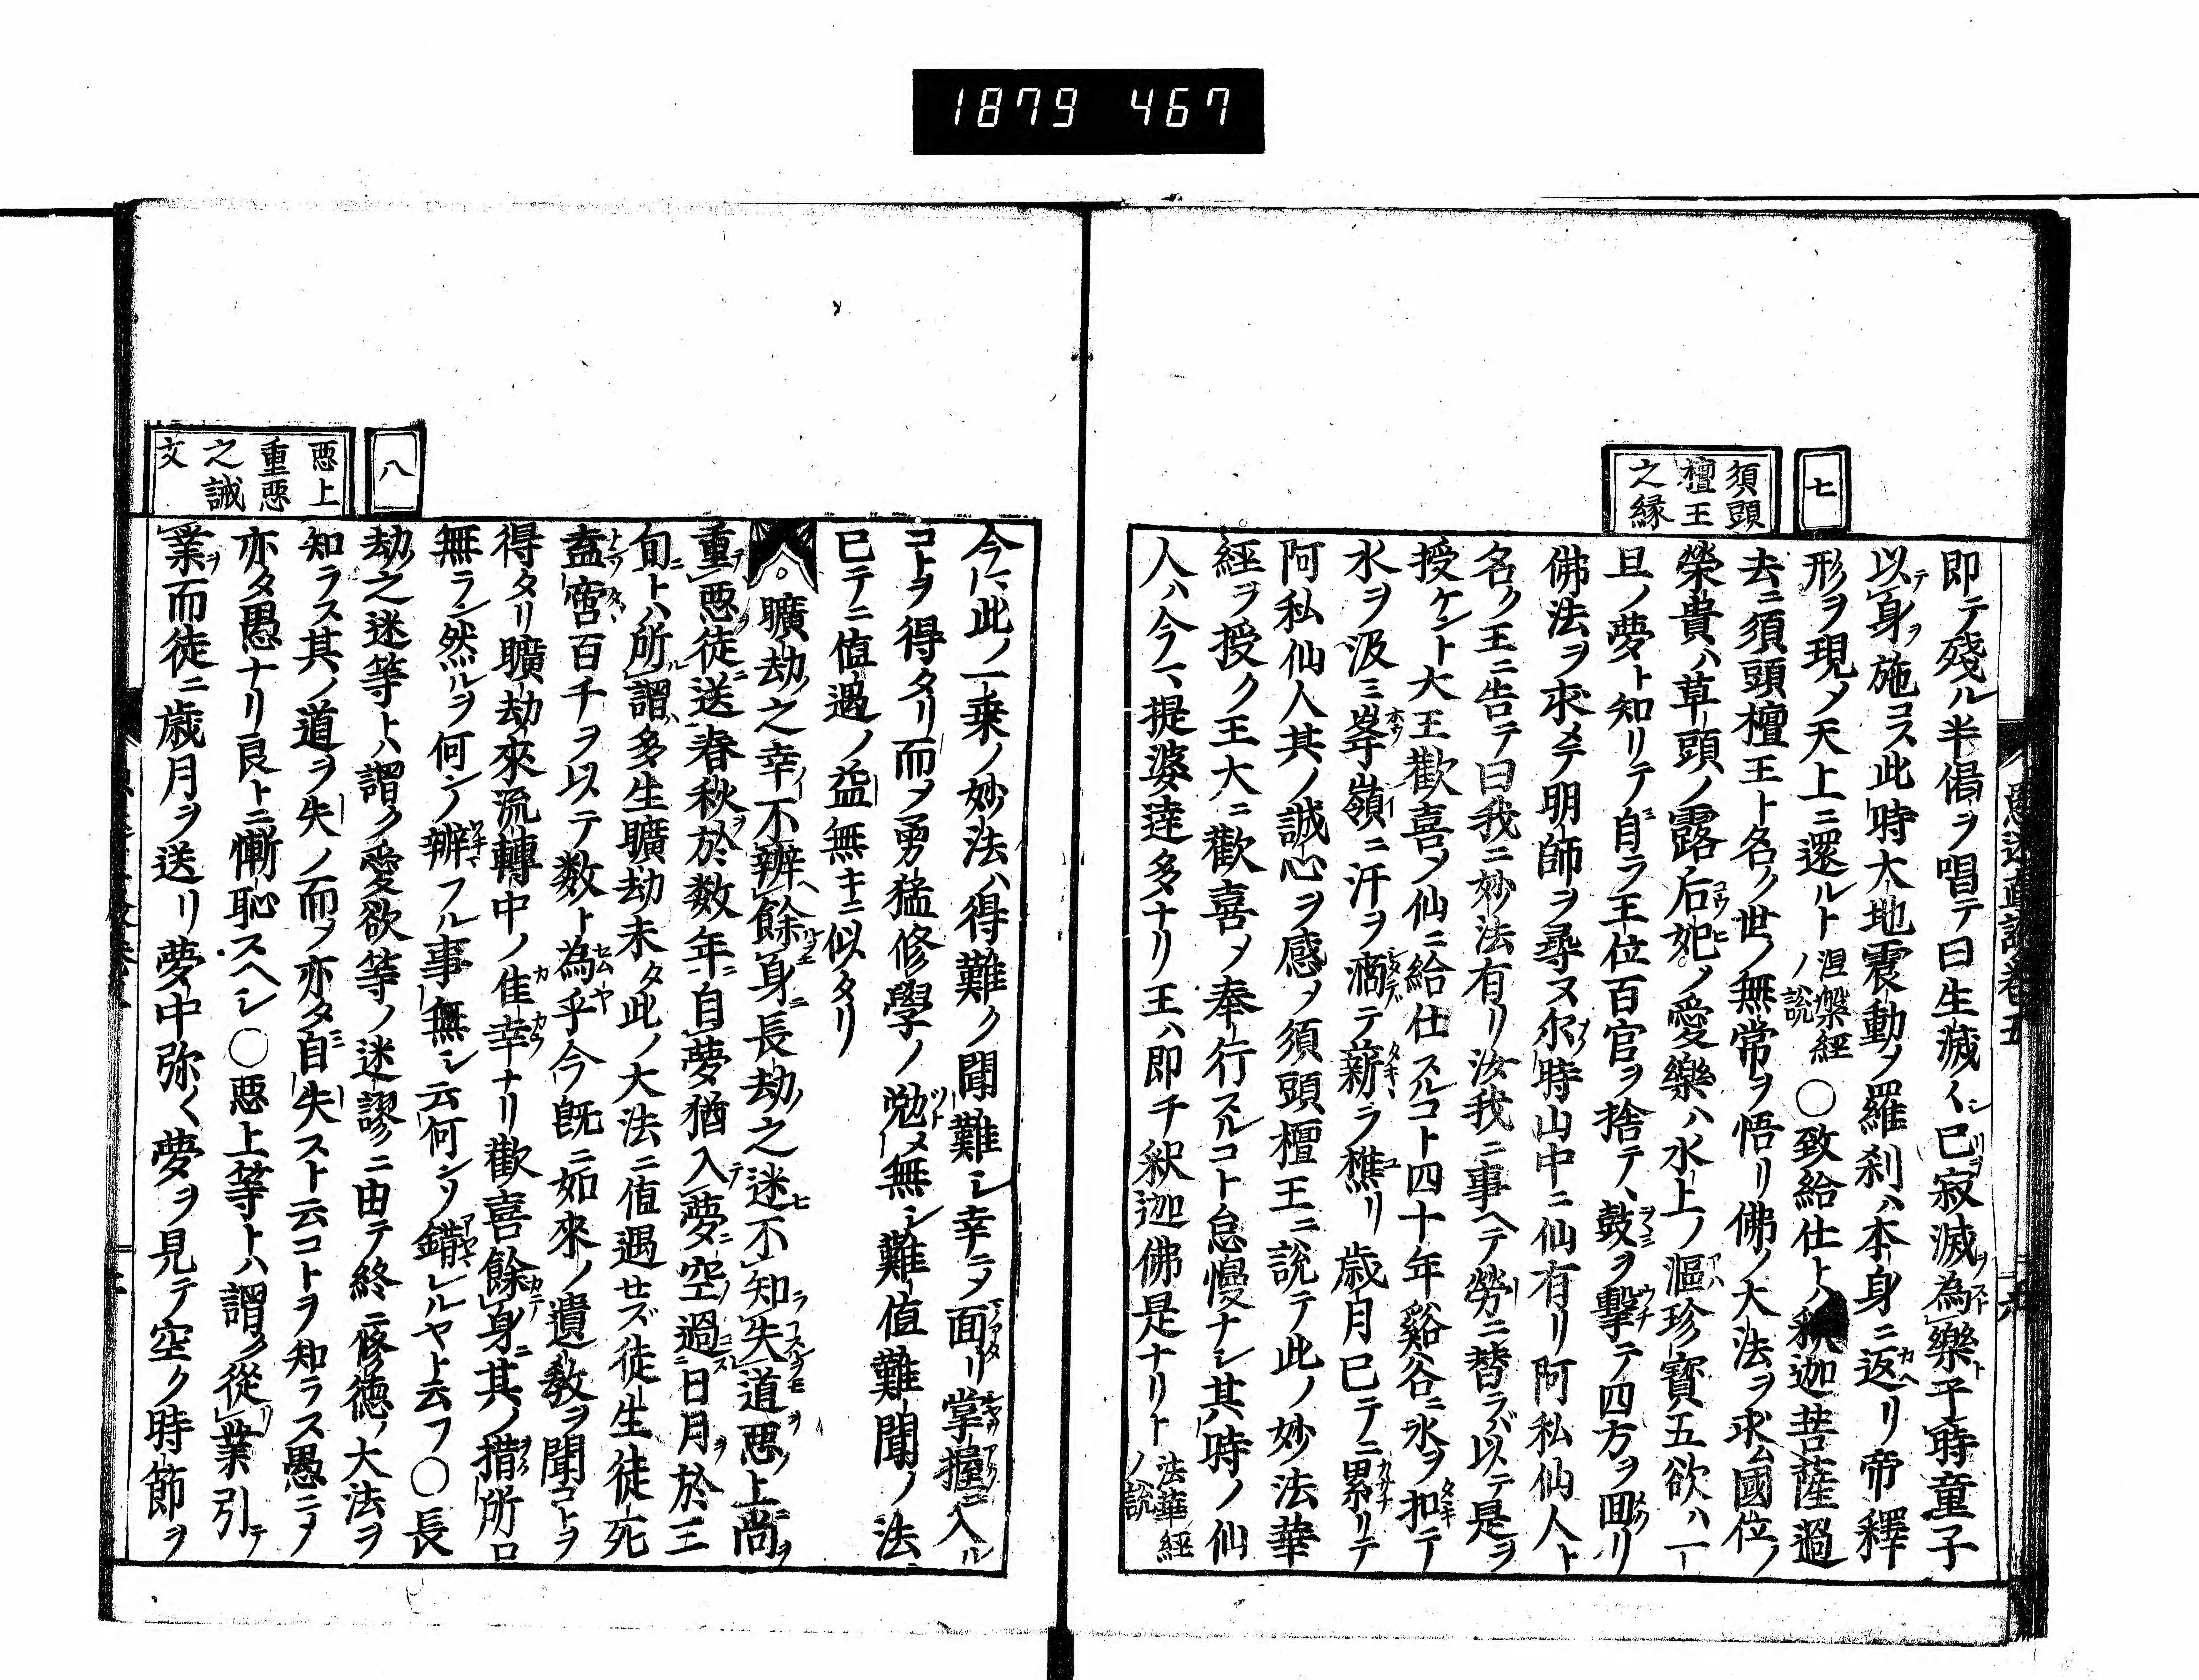 1879 467
七
須頭
檀王
之縁
即テ殘ル半偈ヲ唱テ曰生滅々已寂滅為樂ト于時童子
以テ身ヲ施コス此時大地震動ノ羅刹ハ本身ニ返リ帝釋
形ヲ現メ天上ニ還ルト涅槃經ノ説〇致給仕トハ釈迦菩薩過
去ニ須頭檀王ト名ク世ノ無常ヲ悟リ佛ノ大法ヲ求ム國位ノ
榮貴ハ草頭ノ露后妃ノ愛樂ハ水上ノ漚珍寳五欲ハ一
旦ノ夢ト知リテ自ラ王位百官ヲ捨テ、鼓ヲ擊テ四方ヲ囬リ
佛法ヲ求メテ明師ヲ尋ヌ尓時山中ニ仙有リ阿私仙人ト
名ク王ニ告テ曰我ニ妙法有リ汝我ニ事ヘテ勞ニ替ラバ以テ是ヲ
授ケント大王歡喜メ仙ニ給仕スルコト四十年谿谷ニ氷ヲ扣テ
水ヲ汲ミ峯嶺ニ汗ヲ滴テ薪ヲ樵リ歳月已テニ累リテ
阿私仙人其ノ誠心ヲ感メ須頭檀王ニ説テ此ノ妙法華
經ヲ授ク王大ニ歡喜メ奉行スルコト怠慢ナシ其時ノ仙
人ハ今マ提婆達多ナリ王ハ即チ釈迦佛是ナリト法華經ノ説
八
悪上
重悪
之誡
文
今ハ此ノ一乗ノ妙法ハ得難ク聞難シ幸ニメ面リ掌握ニ入ル
コトヲ得タリ而メ勇猛修學ノ勉メ無シ難値難聞ノ法
已テニ値遇ノ益無キニ似タリ
。曠劫之幸不辨餘身ニ長劫之迷不知失道悪上尚ヲ
重テ悪徒ニ送春秋ヲ於数年ニ自夢猶入テ夢ニ空過日月ヲ於三
旬ニトハ所謂ル多生曠劫未タ此ノ大法ニ値遇セズ徒生徒死
盍啻百千ヲ以テ数ト為乎今既ニ如來ノ遺教ヲ聞コトヲ
得タリ曠劫來流轉中ノ佳幸ナリ歡喜餘身ニ其ノ措所ロ
無ラン然ルヲ何シノ辨フル事無シ云何シソ錯レルヤト云フ〇長
劫之迷等トハ謂ク愛欲等ノ迷謬ニ由テ終ニ修徳ノ大法ヲ
知ラス其ノ道ヲ失ノ而ヲ亦タ自失スト云コトヲ知ラス愚ニメ
亦タ愚ナリ良トニ慚恥スヘシ〇悪上等トハ謂ク從業引テ
業ヲ而徒ニ歳月ヲ送リ夢中弥く夢ヲ見テ空ク時節ヲ